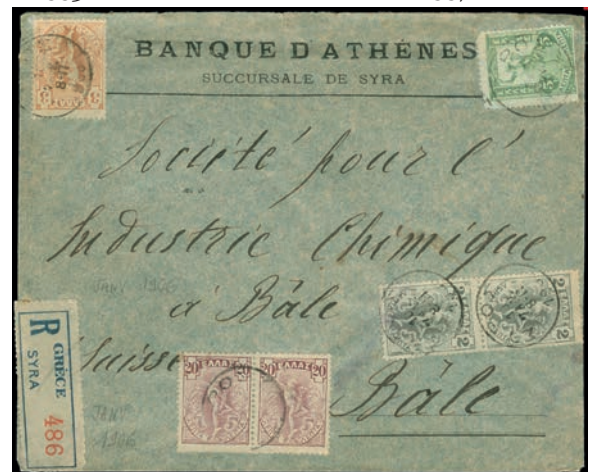 BANQUE D ATHÈNES
SUCCURSALE DE SYRA
Société pour l'
Industrie Chimique
JANV 1906
à Bâle
Suisse
Bâle
JANV
1906
R GRÈCE
SYRA
486
20 ΕΛΛΑΣ 20
2 ΕΛΛΑΣ 2